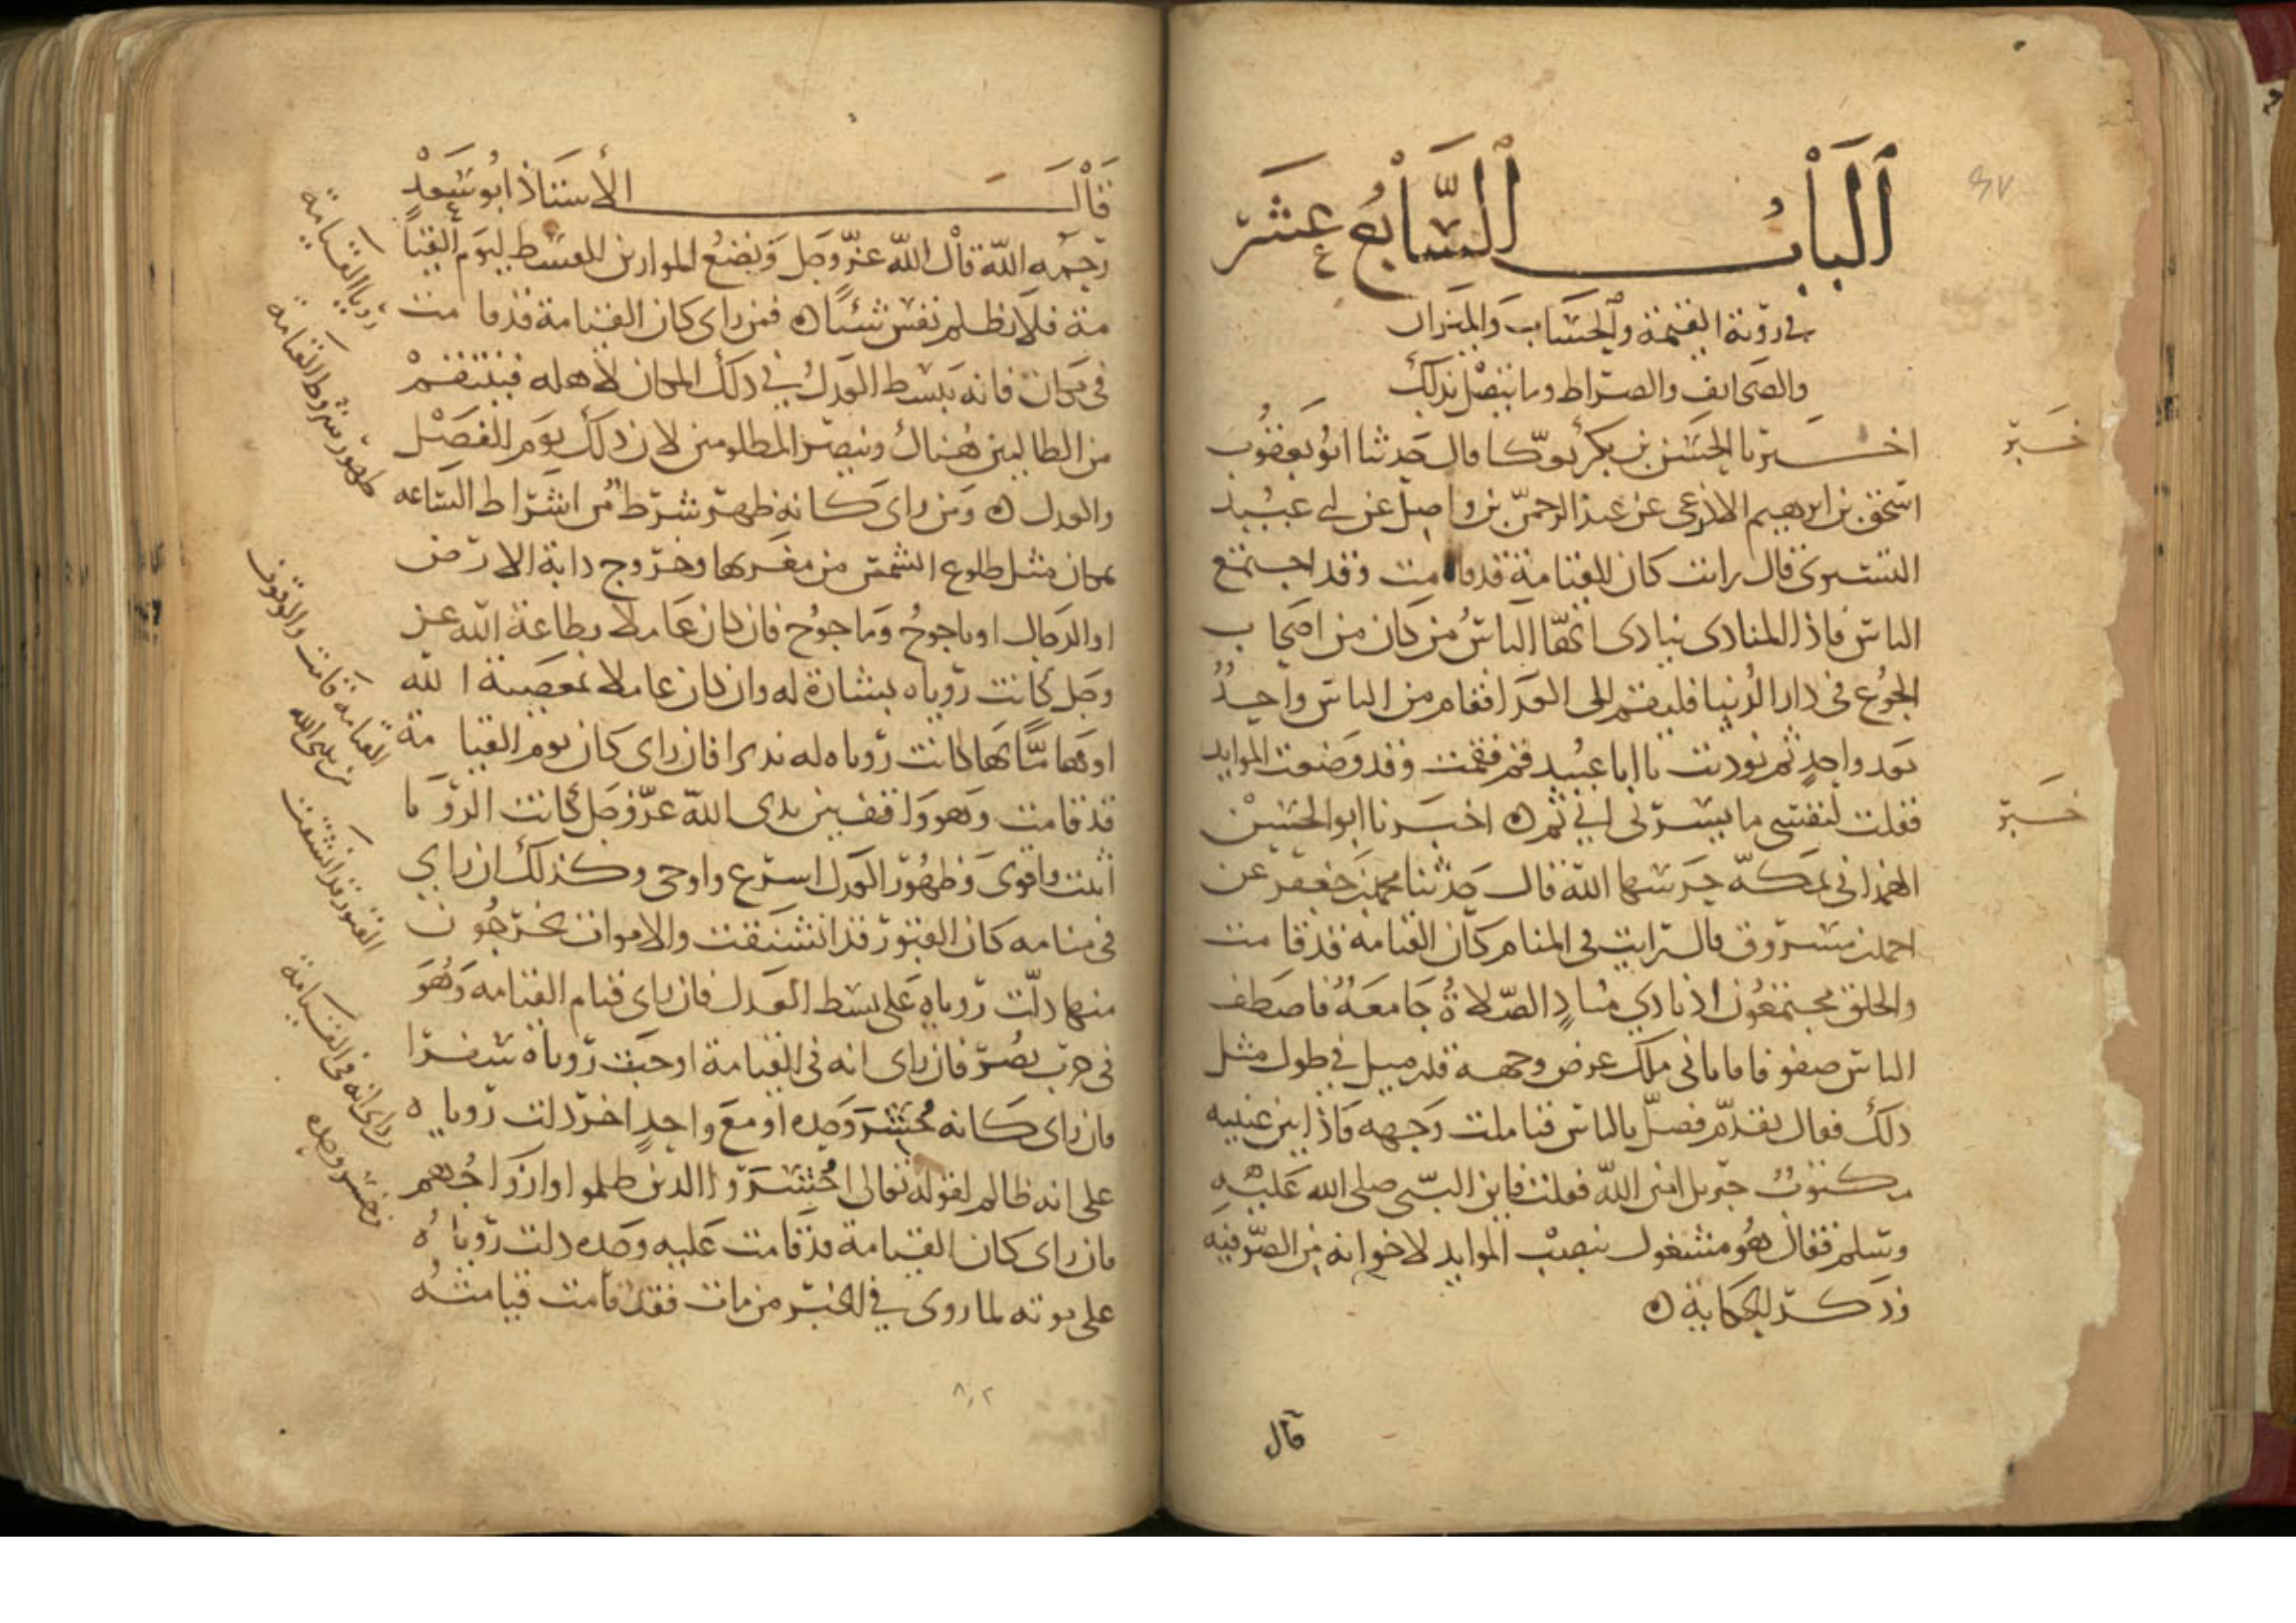 اَلبابُ السَّابعُ عَشَر
في رؤية القيمة والحساب والميزان
والصحايف والصراط وما يتصل بذلك
اخبرنا الحسن بن بكر بعكا قال حدثنا ابو يعقوب
اسحق بن ابرهيم الاذرعى عن عبد الرحمن بن واصل عن ابى عبيد
التسترى قال رايت كان القيامة قد قامت وقد اجتمع
الناس فاذا المنادى ينادى ايها الناس من كان من اصحاب
الجوع فى دار الدنيا فليقم الى الغدا فقام من الناس واحد
بعد واحد ثم نوديت يا ابا عبيد قم فقمت وقد وضعت الموايد
فقلت لنفسى ما يسرنى انى ثم ه اخبرنا ابو الحسين
الهمدانى بمكة حرسها الله قال حدثنا محمد بن جعفر عن
احمد بن مسروق قال رايت فى المنام كان القيامة قد قامت
والخلق مجتمعون اذ نادى مناد الصلاة جامعة فاصطف
الناس صفوفا فاتانى ملك عرض وجهه قدر ميل في طول مثل
ذلك فقال تقدم فصل بالناس فتاملت وجهه فاذا بين عينيه
مكتوب جبريل امين الله فقلت فاين النبى صلى الله عليه
وسلم فقال هو مشغول بنصب الموايد لاخوانه من الصوفية
وذكر الحكاية ه
قال
خبر
خبر
قال الأستاذ ابو سعد
رحمه الله قال الله عز وجل ونضع الموازين القسط ليوم القيا
مة فلا تظلم نفس شيئا ه فمن راى كان القيامة قد قامت
فى مكان فانه يبسط العدل في ذلك المكان لاهله فينتقم
من الظالمين هناك وينصر المظلومين لان ذلك يوم الفصل
والعدل ه ومن راى كانه ظهر شرط من اشراط الساعه
بمكان مثل طلوع الشمس من مغربها وخروج دابة الارض
او الدجال او ياجوج وماجوج فان كان عاملا بطاعة الله عز
وجل كانت رؤياه بشارة له وان كان عاملا بمعصية الله
او هاما بها كانت رؤياه له نديرا فان راى كان يوم القيامة
قد قامت وهو واقف بين يدى الله عز وجل كانت الرؤيا
اثبت واقوى وظهور العدل اسرع واوحى وكذلك ان راى
فى منامه كان القبور قد انشقت والاموات يخرجون
منها دلت رؤياه على بسط العدل فان راى قيام القيامه وهو
فى حرب نصر فان راى انه فى القيامة اوجبت رؤياه سفرا
فان راى كانه حشر وحده او مع واحد اخر دلت رؤياه
على انه ظالم لقوله تعالى احشروا الذين ظلموا وازواجهم
فان راى كان القيامة قد قامت عليه وحده دلت رؤياه
على موته لما روى في الخبر من مات فقد قامت قيامته
رويا القيامة
ظهور شروط القيامة
القيامة قامت والوقوف
بين يدى الله
القبور قد انشقت
راى انه فى القيامة
حشر وحده